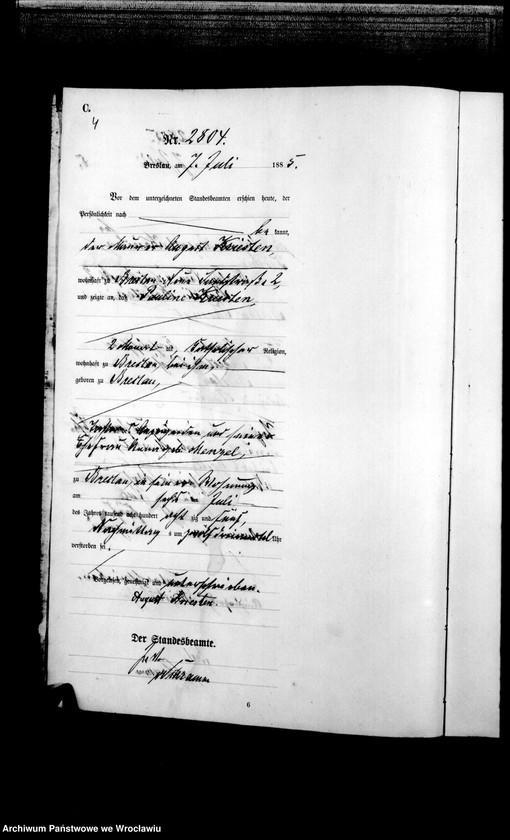 C.
4
Nr. 2804.
Breslau, am 7. Juli 1885.
Vor dem unterzeichneten Standesbeamten erschien heute, der
Persönlichkeit nach
be kannt,
der Maurer August Kriesten,
wohnhaft zu Breslau, 2,
und zeigte an, daß Pauline Kriesten,
2 Monat alt, katholischer Religion,
wohnhaft zu Breslau bei ihm,
geboren zu Breslau,
Tochter des Anzeigenden und seiner
Ehefrau Anna geb. Menzel,
zu Breslau, in seiner Wohnung
am sechsten Juli
des Jahres tausend acht hundert acht zig und fünf,
Nachmittags um zwölf dreiviertel Uhr
verstorben sei.
Vorgelesen, genehmigt und unterschrieben.
August Kriesten
Der Standesbeamte.
6
Archiwum Państwowe we Wrocławiu